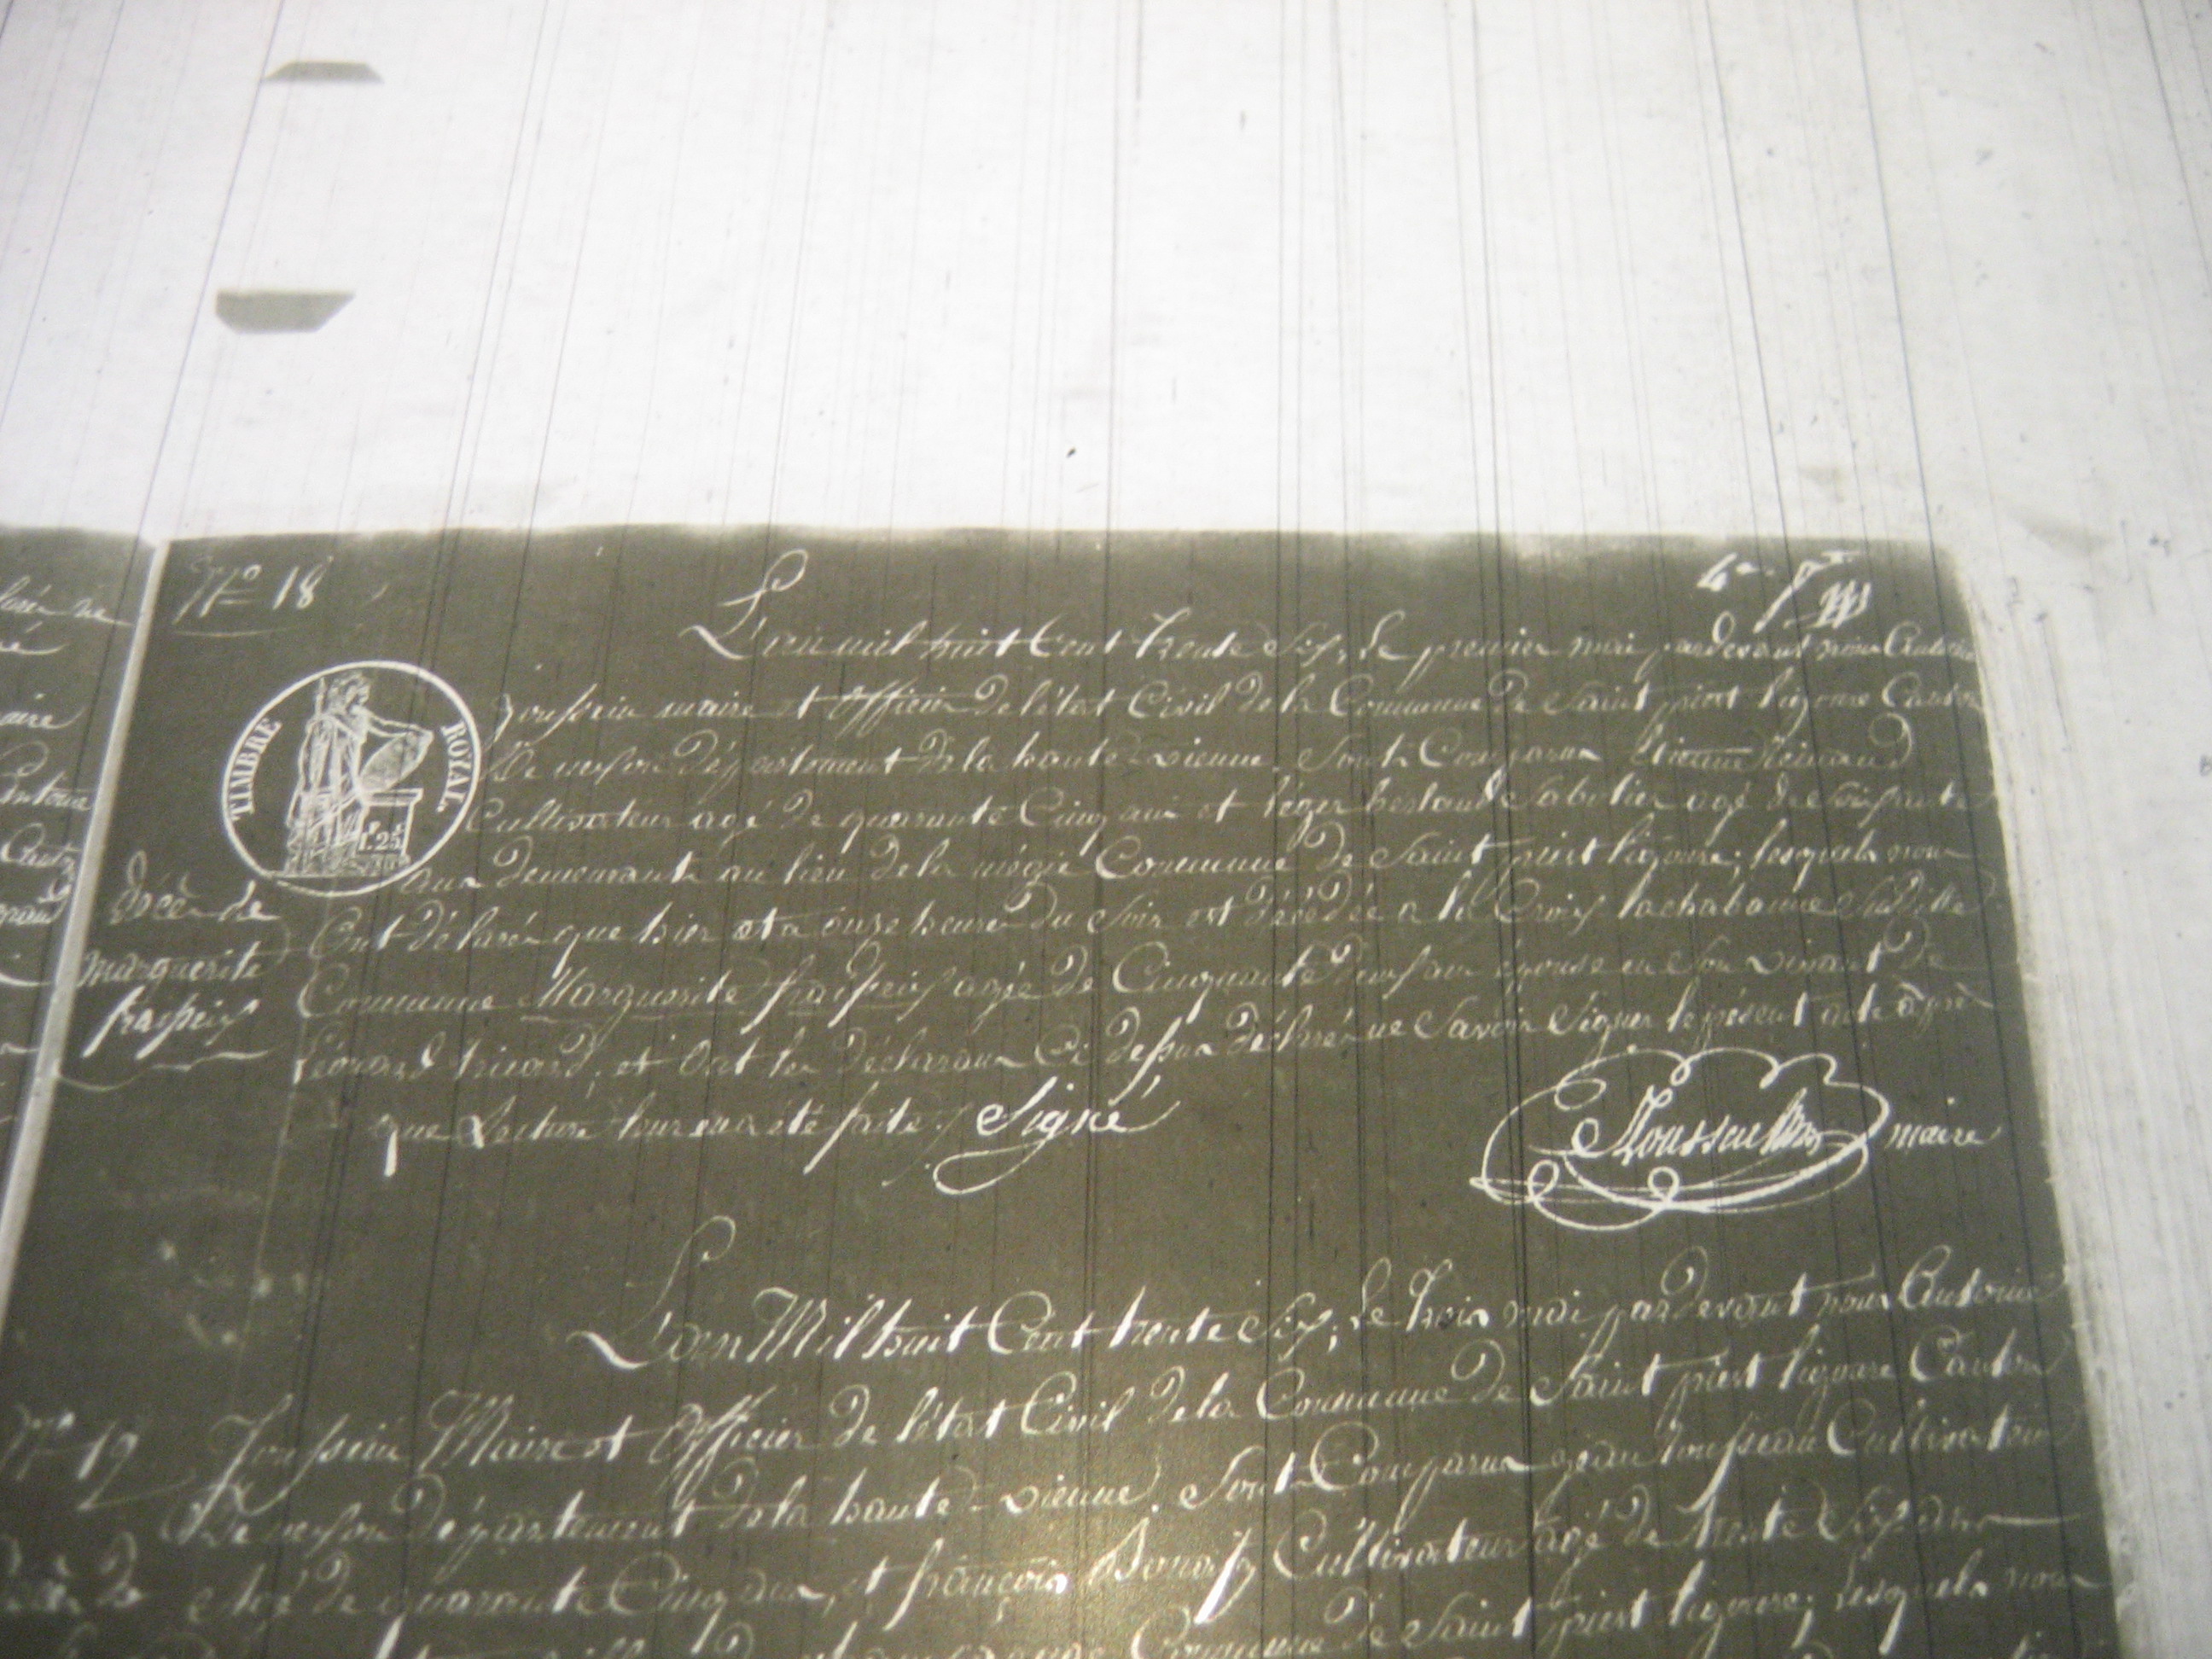 N° 18
L'an mil huit Cent trente Six, le premier mai pardevant nous Antoine
Joussein maire et Officier de l'état Civil de la Commune de Saint pierst ligoure Canton
TIMBRE ROYAL
F. 1.25
De nexson département de la haute vienne. Sont Comparus Etienne
Cultivateur agé de quarante Cinq ans et léger Sabotier agé de Soixante
ans demeurants au lieu de la Commune de Saint pierst ligoure; lesquels nous
décès de
marguerite
fraisseix
Ont déclaré que hier et a onze heures du Soir est décédée a la Croix lachabanne Susditte
Commune Marguerite fraisseix agée de Cinquante deux ans épouse en Son vivant de
Léonard tricard, et Ont les déclarans Ci dessus déclaré ne Savoir Signer le présent acte après
que Lecture leur en a été faite. Signé
maire
L'an Mil huit Cent trente Six, le trois mai pardevant nous Antoine
N° 19
Joussein Maire et Officier de l'état Civil de la Commune de Saint pierst ligoure Canton
De nexson département de la haute-vienne. Sont Comparus jean rousseau Cultivateur
décès de
agé de quarante Cinq ans, et françois Cultivateur agé de trente Six ans
Commune de Saint pierst ligoure; lesquels nous